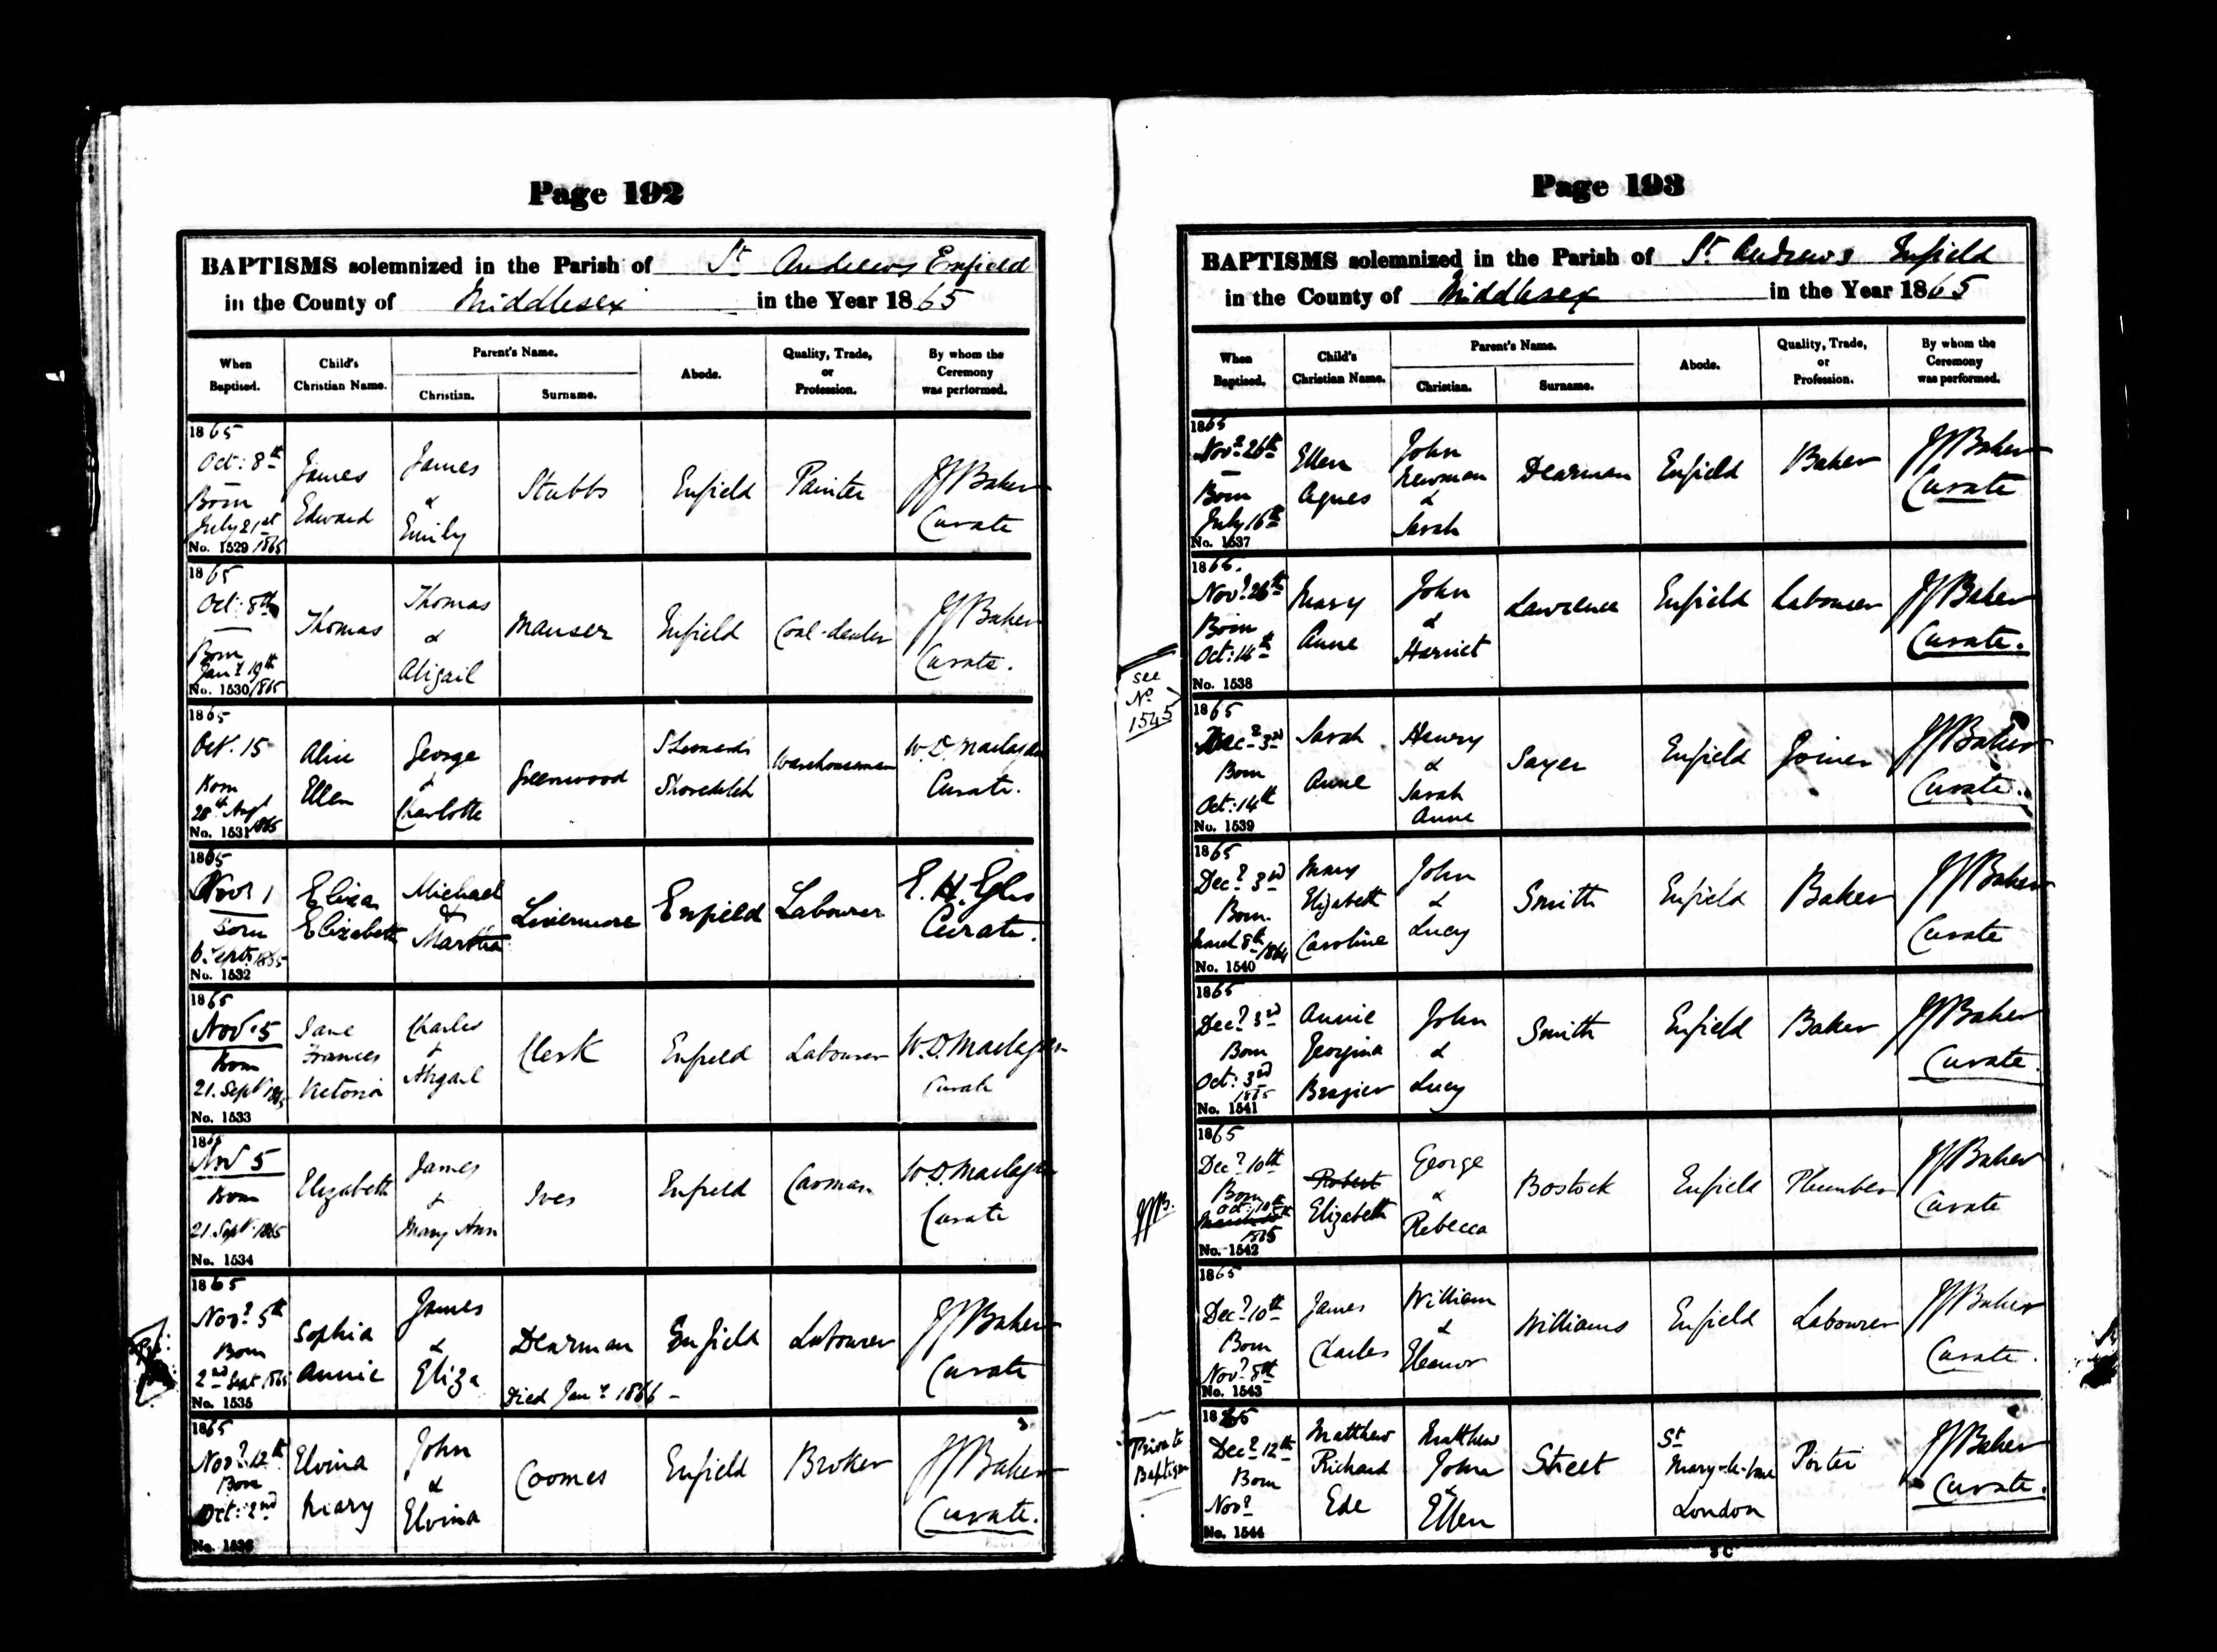 Page 192
BAPTISMS solemnized in the Parish of St Andrews Enfield
in the County of Middlesex in the Year 1865
When Baptised. Child's Christian Name. Parent's Name. Christian. Surname. Abode. Quality, Trade, or Profession. By whom the Ceremony was performed.
1865
Oct: 8th
Born
July 21st
1865
No. 1529
James
Edward
James
&
Emily
Stubbs
Enfield
Painter
JJ Baker
Curate
1865
Oct: 8th
Born
Jany 19th
1865
No. 1530
Thomas
Thomas
&
Abigail
Manser
Enfield
Coal-dealer
JJ Baker
Curate.
1865
Oct. 15
Born
28th Augt
1865
No. 1531
Alice
Ellen
George
&
Charlotte
Greenwood
St Leonards
Shoreditch
Warehouseman
W. D. Maclagan
Curate.
1865
Novr 1
Born
6. Septr 1865
No. 1532
Eliza
Elizabeth
Michael
&
Martha
Livermore
Enfield
Labourer
E. H.
Curate.
1865
Nov. 5
Born
21. Sept 1865
No. 1533
Jane
Frances
Victoria
Charles
&
Abigail
Clerk
Enfield
Labourer
W. D. Maclagan
Curate
1865
Nov 5
Born
21. Sept. 1865
No. 1534
Elizabeth
James
&
Mary Ann
Ives
Enfield
Carman
W. D. Maclagan
Curate
1865
Novr 5th
Born
2nd Sept 1865
No. 1535
Sophia
Annie
James
&
Eliza
Dearman
Died Jany 1866 -
Enfield
Labourer
JJ Baker
Curate
1865
Novr 12th
Born
Oct: 2nd
No. 1536
Elvina
Mary
John
&
Elvina
Coomes
Enfield
Broker
JJ Baker
Curate.
Page 193
BAPTISMS solemnized in the Parish of St Andrews Enfield
in the County of Middlesex in the Year 1865
When Baptised. Child's Christian Name. Parent's Name. Christian. Surname. Abode. Quality, Trade, or Profession. By whom the Ceremony was performed.
1865
Novr 26th
Born
July 16th
No. 1537
Ellen
Agnes
John
Newman
&
Sarah
Dearman
Enfield
Baker
JJ Baker
Curate
1865.
Novr 26th
Born
Oct: 14th
No. 1538
Mary
Anne
John
&
Harriet
Lawrence
Enfield
Labourer
JJ Baker
Curate.
see
No
1545
1865
Decr 3rd
Born
Oct: 14th
No. 1539
Sarah
Anne
Henry
&
Sarah
Anne
Sayer
Enfield
Joiner
JJ Baker
Curate.
1865
Decr 3rd
Born
March 8th
1864
No. 1540
Mary
Elizabeth
Caroline
John
&
Lucy
Smith
Enfield
Baker
JJ Baker
Curate
1865
Decr 3rd
Born
Oct: 3rd
1865
No. 1541
Annie
Georgina
Brazier
John
&
Lucy
Smith
Enfield
Baker
JJ Baker
Curate.
JJB.
1865
Decr 10th
Born
Oct: 10th
1865
No. 1542
Robert
Elizabeth
George
&
Rebecca
Bostock
Enfield
Plumber
JJ Baker
Curate
1865
Decr 10th
Born
Novr 8th
No. 1543
James
Charles
William
&
Eleanor
Williams
Enfield
Labourer
JJ Baker
Curate.
Private
Baptism
1865
Decr 12th
Born
Novr
No. 1544
Matthew
Richard
Ede
Matthew
John
&
Ellen
Street
St
Mary-le-bone
London
Porter
JJ Baker
Curate.